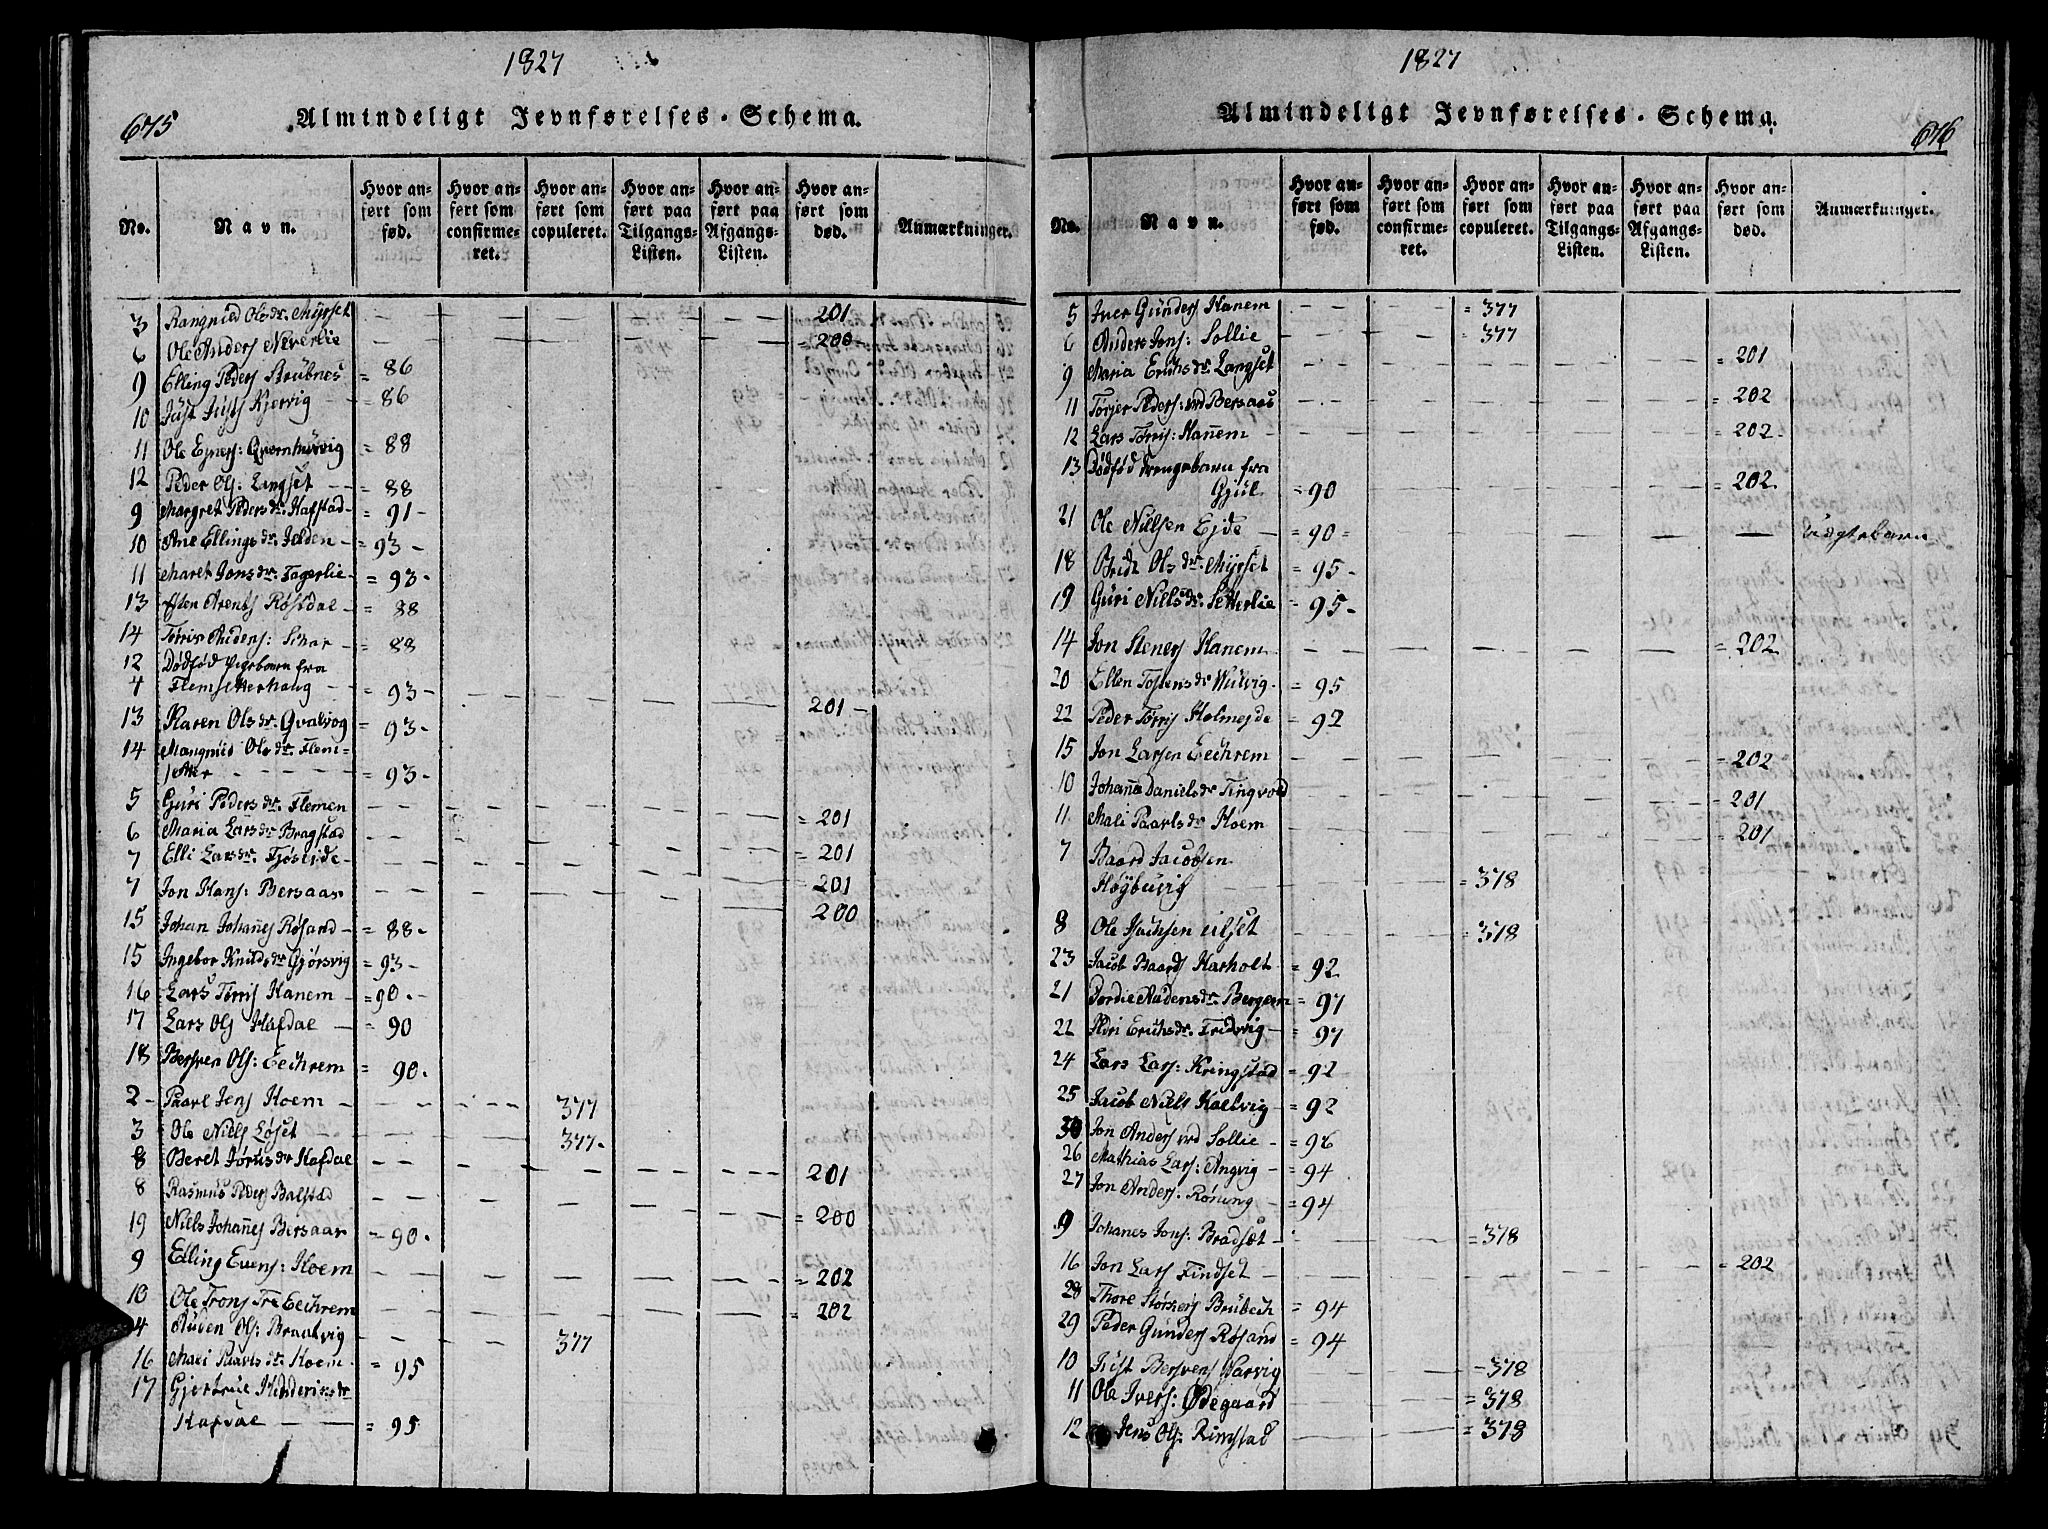 1827
675
Almindeligt Jevnførelses-Schema.
No. Navn. Hvor anført som fød. Hvor anført som confirmeret. Hvor anført som copuleret. Hvor anført paa Tilgangs-Listen. Hvor anført paa Afgangs-Listen. Hvor anført som død. Anmærkninger.
3 Rangnild Olsdr. Myrset 201
6 Ole Anders Neverlie = 200
9 Elling Peders Strübnes = 86
10 Just Justs Kjervig = 86
11 Ole Ejners: = 88
12 Peder Ols: Langset = 88
9 Margret Pedersdr. Hafstad = 91
10 Ane Ellingsdr. Jelden = 93
11 Maret Jonsdr. Fagerlie = 93
13 Esten Arents Røsdal = 88
14 Tørris Anders: = 88
12 Dødfød Pigebarn fra
4 Flemsetterhaug = 93 201
13 Karen Olsdr. Gvalvog = 93
14 Mangnild Olsdr. Flem-
setter = 93
5 Guri Pedersdr. Flemen = 201
6 Maria Larsdr. Bragstad = 201
7 Elli Larsdr. 201
7 Jon Hans: Bersaas 200
15 Johan Johañes Røsand = 88
15 Ingebor Knudsdr. Gjørsvig = 93
16 Lars Tørris Hanem = 90
17 Lars Ols Hafdal = 90
18 Bersven Ols: Eechrem = 90
2 Paarl Jens Hoem 377
3 Ole Niels Løset 377
8 Beret Jørisdr Hafdal 201
8 Rasmus Peders Balstad = 200
19 Niels Johañes Bersaas = 90
9 Elling Evens: Hoem = 202
10 Ole Trons Eechrem = 202
4 Auden Ols: Braatvig 377
16 Mali Paarlsdr. Hoem = 95
17 Gjertrue
Hafdal = 95
1827
676
Almindeligt Jevnførelses-Schema.
No. Navn. Hvor anført som fød. Hvor anført som confirmeret. Hvor anført som copuleret. Hvor anført paa Tilgangs-Listen. Hvor anført paa Afgangs-Listen. Hvor anført som død. Anmærkninger.
5 Iver Gunders Hanem = 377
6 Anders Jons: Sollie = 377
9 Maria Erichsdr. Langset = 201
11 Torjer Peders: Bersaas = 202
12 Lars Tørris: Hanem = 202
13 Dødfød Drengebarn fra
Gjül = 90 = 202
21 Ole Nielsen Ejde = 90 =
18 Bridt Olsdr. Myrset = 95
19 Guri Nielsdr. Setterlie = 95
14 Jon Steners Hanem = 202
20 Ellen Tostensdr Wulvig = 95
22 Peder Tørris Holmejde = 92
15 Jon Larsen Eechrem = 202
10 Johaña Danielsdr Tingvold = 201
11 Mali Paarlsdr Hoem = 201
7 Baard Jacobsen
Høgbuvig = 378
8 Ole Isachsen = 378
23 Jacob Baards Harholt = 92
21 Dordie Audensdr. Bergem = 97
22 Peri Erichsdr. Fredvig = 97
24 Lars Lars: Kringstad = 92
25 Jacob Niels Hoelvig = 92
30 Jon Anders Sollie = 96
26 Mathias Lars: Angvig = 94
27 Jon Anders: Røning = 94
9 Johanes Jons: Bradsæt = 378
16 Jon Lars Findset = 202
28 Thore Størkers Brubech = 94
29 Peder Gunders Røsand = 94
10 Just Bersvens Harvig = 378
11 Ole Ivers: Ødegaard = 378
12 Jens Ols: Rimstad = 378